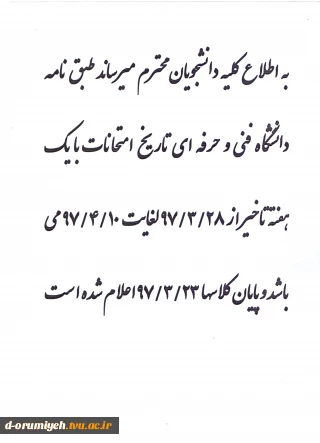 به اطلاع کلیه دانشجویان محترم میرساند طبق نامه
دانشگاه فنی و حرفه ای تاریخ امتحانات با یک
هفته تاخیر از ۹۷/۳/۲۸ لغایت ۹۷/۴/۱۰ می
باشد و پایان کلاسها ۹۷/۳/۲۳ اعلام شده است
d-orumiyeh.tvu.ac.ir